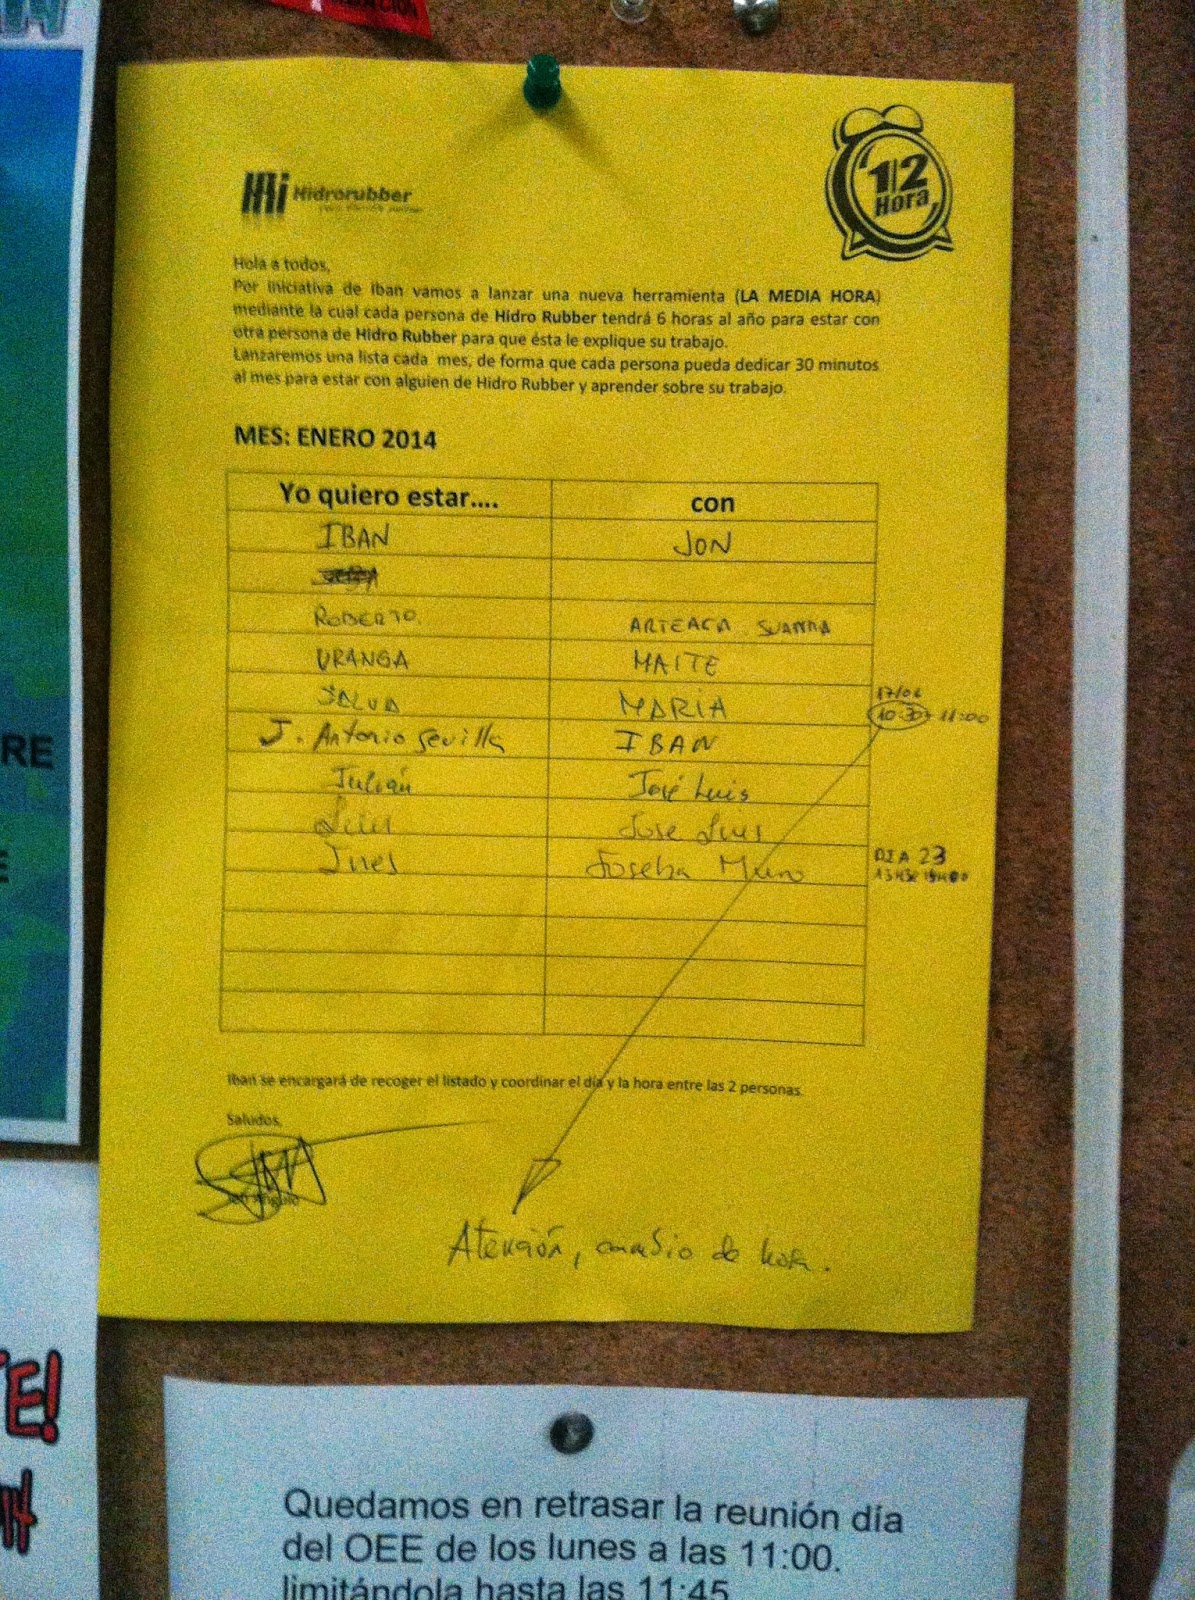 1/2
Hora
Hidrorubber
Hola a todos,
Por iniciativa de Iban vamos a lanzar una nueva herramienta (LA MEDIA HORA)
mediante la cual cada persona de Hidro Rubber tendrá 6 horas al año para estar con
otra persona de Hidro Rubber para que ésta le explique su trabajo.
Lanzaremos una lista cada mes, de forma que cada persona pueda dedicar 30 minutos
al mes para estar con alguien de Hidro Rubber y aprender sobre su trabajo.
MES: ENERO 2014
Yo quiero estar.... con
IBAN JON
ROBERTO. ARTEAGA
URANGA MAITE
SALVA MARIA 17/01
10:30 11:00
J. Antonio Sevilla IBAN
Julián José Luis
Luis Jose Luis
Ines Joseba DIA 23
Iban se encargará de recoger el listado y coordinar el día y la hora entre las 2 personas.
Saludos,
Atención, cambio de hora.
RE
E
TE!
Quedamos en retrasar la reunión día
del OEE de los lunes a las 11:00.
limitándola hasta las 11:45